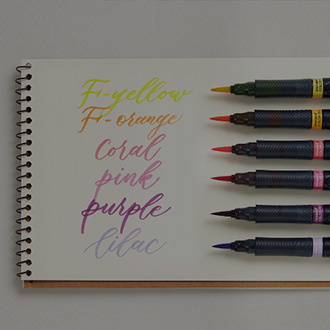 F-yellow
F-orange
coral
pink
purple
lilac